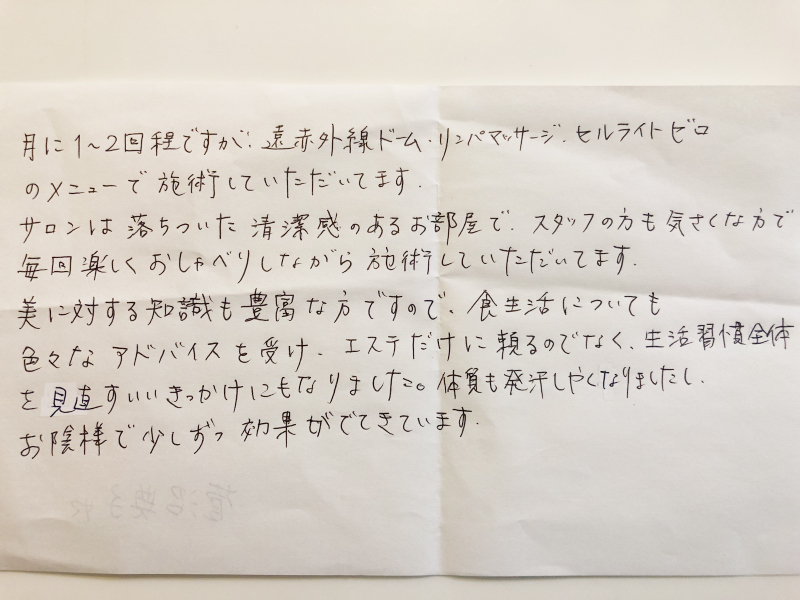 月に1〜2回程ですが、遠赤外線ドーム・リンパマッサージ、セルライトゼロ
のメニューで施術していただいてます。
サロンは落ちついた清潔感のあるお部屋で、スタッフの方も気さくな方で
毎回楽しくおしゃべりしながら施術していただいてます。
美に対する知識も豊富な方ですので、食生活についても
色々なアドバイスを受け、エステだけに頼るのでなく、生活習慣全体
を見直すいいきっかけにもなりました。体質も発汗しやくなりましたし、
お陰様で少しずつ効果がでてきています。